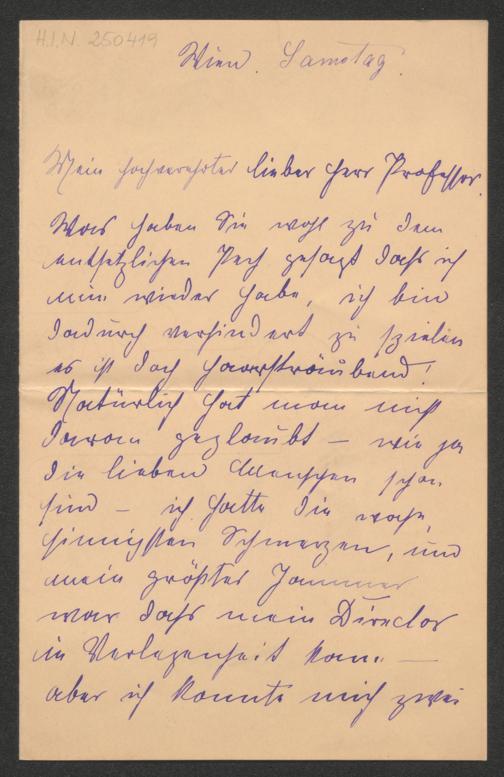 H.I.N. 250419
Wien. Samstag.
Mein hochverehrter lieber Herr Professor.
Was haben Sie wohl zu dem
entsetzlichen Pech gesagt dass ich
nun wieder habe, ich bin
dadurch verhindert zu spielen
es ist doch haarsträubend!
Natürlich hat man nicht
daran geglaubt – wie ja
die lieben Menschen schon
sind – ich hatte die wahn
sinnigsten Schmerzen, und
mein größter Jammer
war dass mein Director
in Verlegenheit kam. —
aber ich konnte mich zwei